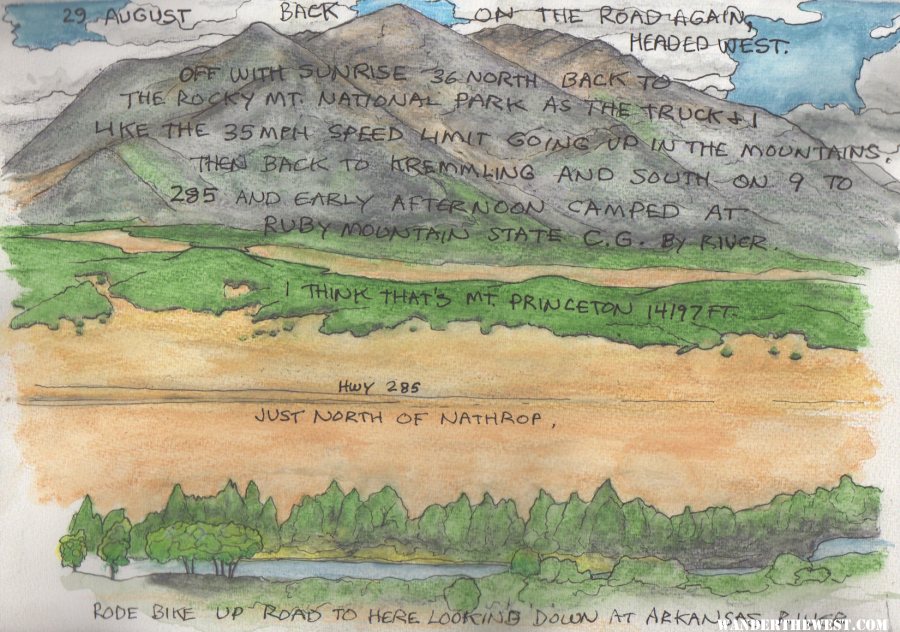 29 AUGUST BACK ON THE ROAD AGAIN,
HEADED WEST.
OFF WITH SUNRISE 36 NORTH BACK TO
THE ROCKY MT. NATIONAL PARK AS THE TRUCK + I
LIKE THE 35 MPH SPEED LIMIT GOING UP IN THE MOUNTAINS.
THEN BACK TO KREMMLING AND SOUTH ON 9 TO
285 AND EARLY AFTERNOON CAMPED AT
RUBY MOUNTAIN STATE C.G. BY RIVER.
I THINK THAT'S MT. PRINCETON 14197 FT.
HWY 285
JUST NORTH OF NATHROP,
RODE BIKE UP ROAD TO HERE LOOKING DOWN AT ARKANSAS RIVER
WANDERTHEWEST.COM